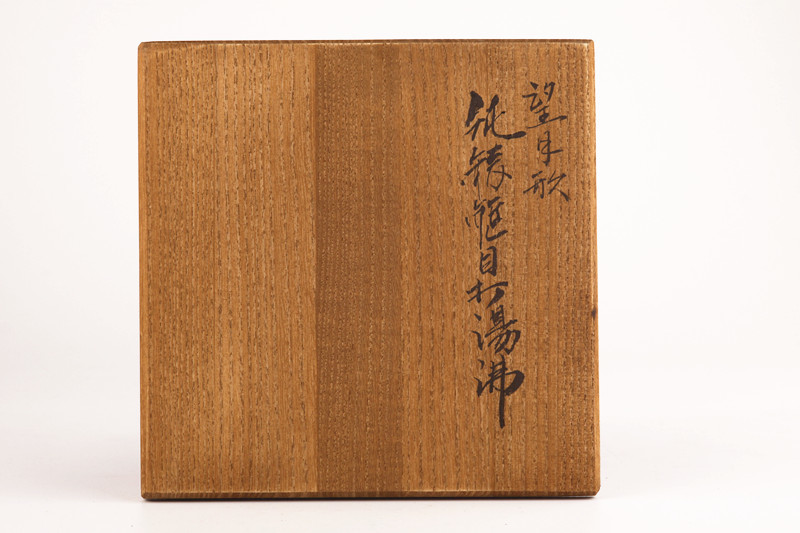 望月形
純銀鎚目打湯沸